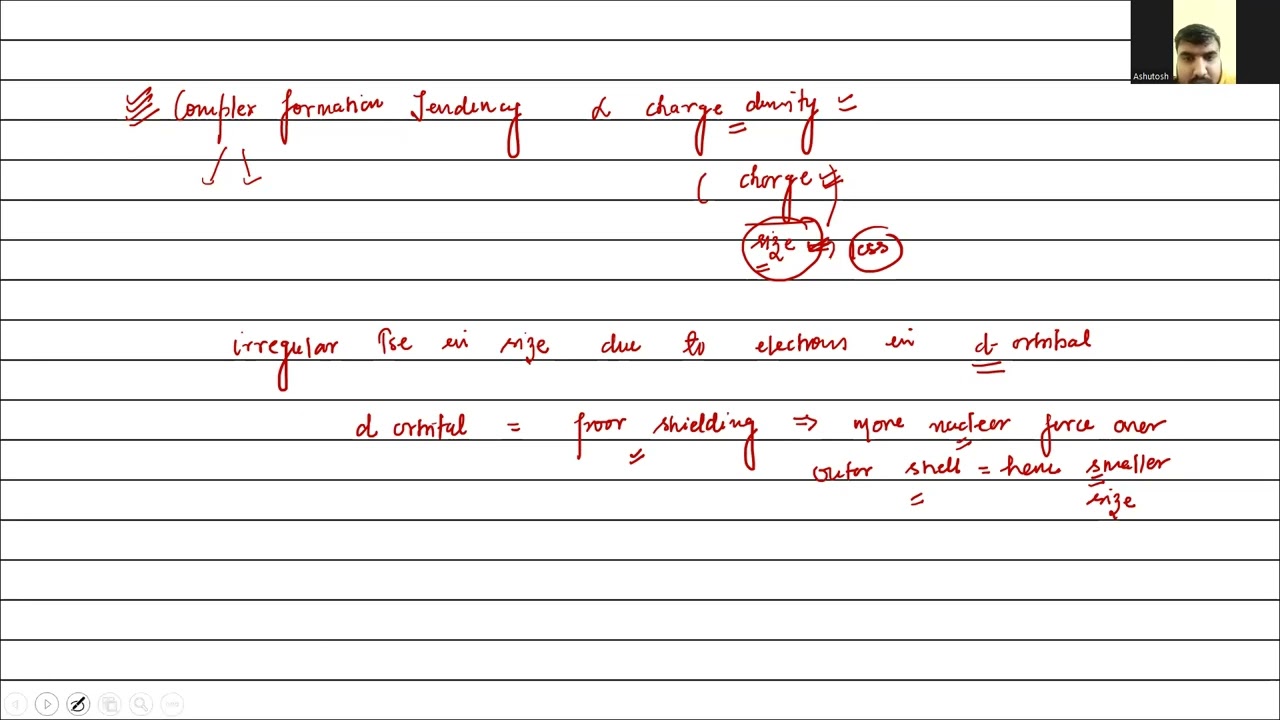 Ashutosh
Complex formation Tendency α charge density
( charge )
size ⇒ less
irregular ↑se in size due to electrons in d orbital
d orbital = poor shielding ⇒ more nuclear force over
outer shell = hence smaller
size